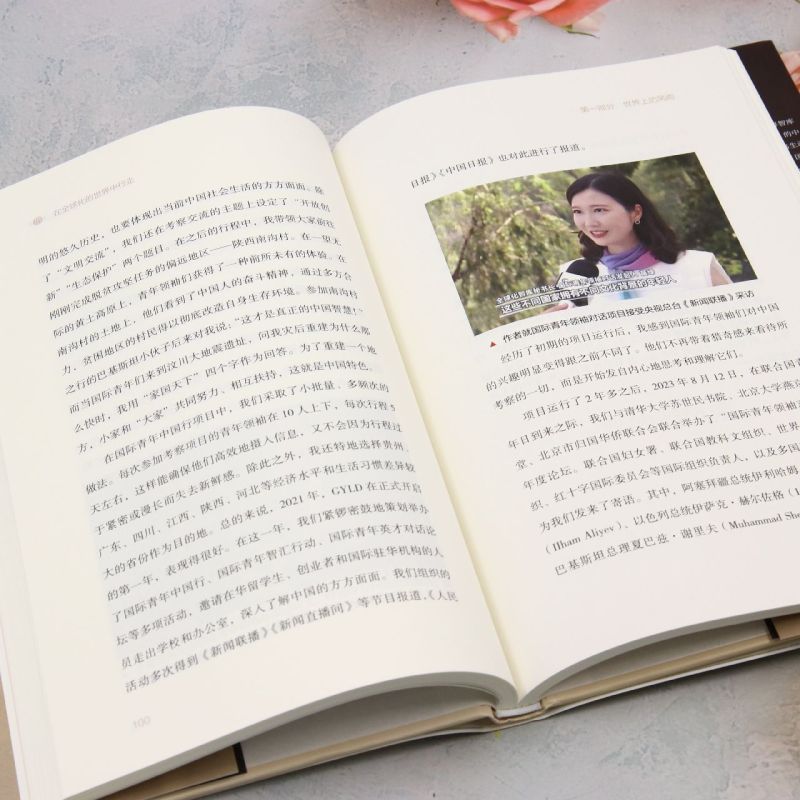 在全球化的世界中行走
明的悠久历史，也要体现出当前中国社会生活的方方面面。除
了“文明交流”，我们还在考察交流的主题上设定了“开放创
新”“生态保护”两个题目。在之后的行程中，我带领大家前往
刚刚完成脱贫攻坚任务的偏远地区——陕西南沟村。在一望无
际的黄土高原上，青年领袖们获得了一种前所未有的体验。在
南沟村的土地上，他们看到了中国人的奋斗精神，通过多方合
力，贫困地区的村民得以彻底改善自身生存环境。参加南沟村
之行的巴基斯坦小伙子后来对我说：“这才是真正的中国智慧！”
而当国际青年们来到汶川大地震遗址，问我灾后重建为什么那
么快时，我用“家国天下”四个字作为回答。为了重建一个地
方，小家和“大家”共同努力、相互扶持，这就是中国特色。
在国际青年中国行项目中，我们采取了小批量、多频次的
做法。每次参加考察项目的青年领袖在 10 人上下，每次行程 5
天左右，这样能确保他们高效地摄入信息，又不会因为行程过
于紧密或漫长而失去新鲜感。除此之外，我还特地选择贵州、
广东、四川、江西、陕西、河北等经济水平和生活习惯差异较
大的省份作为目的地。总的来说，2021 年，GYLD 在正式开启
的第一年，表现得很好。在这一年，我们紧锣密鼓地策划举办
了国际青年中国行、国际青年智汇行动、国际青年英才对话论
坛等多项活动，邀请在华留学生、创业者和国际驻华机构的人
员走出学校和办公室，深入了解中国的方方面面。我们组织的
活动多次得到《新闻联播》《新闻直播间》等节目报道，《人民
100
第一部分 世界上的风向
日报》《中国日报》也对此进行了报道。
这些不同国家拥有不同文化背景的年轻人
▲ 作者就国际青年领袖对话项目接受央视总台《新闻联播》采访
经历了初期的项目运行后，我感到国际青年领袖们对中国
的兴趣明显变得跟之前不同了。他们不再带着猎奇感来看待所
考察的一切，而是开始发自内心地思考和理解它们。
项目运行了 2 年多之后，2023 年 8 月 12 日，在联合国青
年日到来之际，我们与清华大学苏世民书院、北京大学燕京
堂、北京市归国华侨联合会联合举办了“国际青年领袖
年度论坛。联合国妇女署、联合国教科文组织、世界
织、红十字国际委员会等国际组织负责人，以及多国
为我们发来了寄语。其中，阿塞拜疆总统伊利哈姆
（Ilham Aliyev）、以色列总统伊萨克·赫尔佐格（I
巴基斯坦总理夏巴兹·谢里夫（Muhammad She